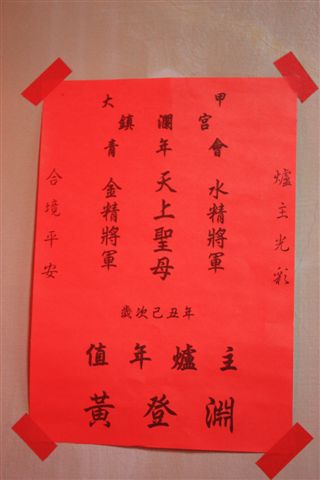 大甲
鎮瀾宮
青年會
爐主光彩
水精將軍
天上聖母
金精將軍
合境平安
歲次己丑年
值年爐主
黃登淵